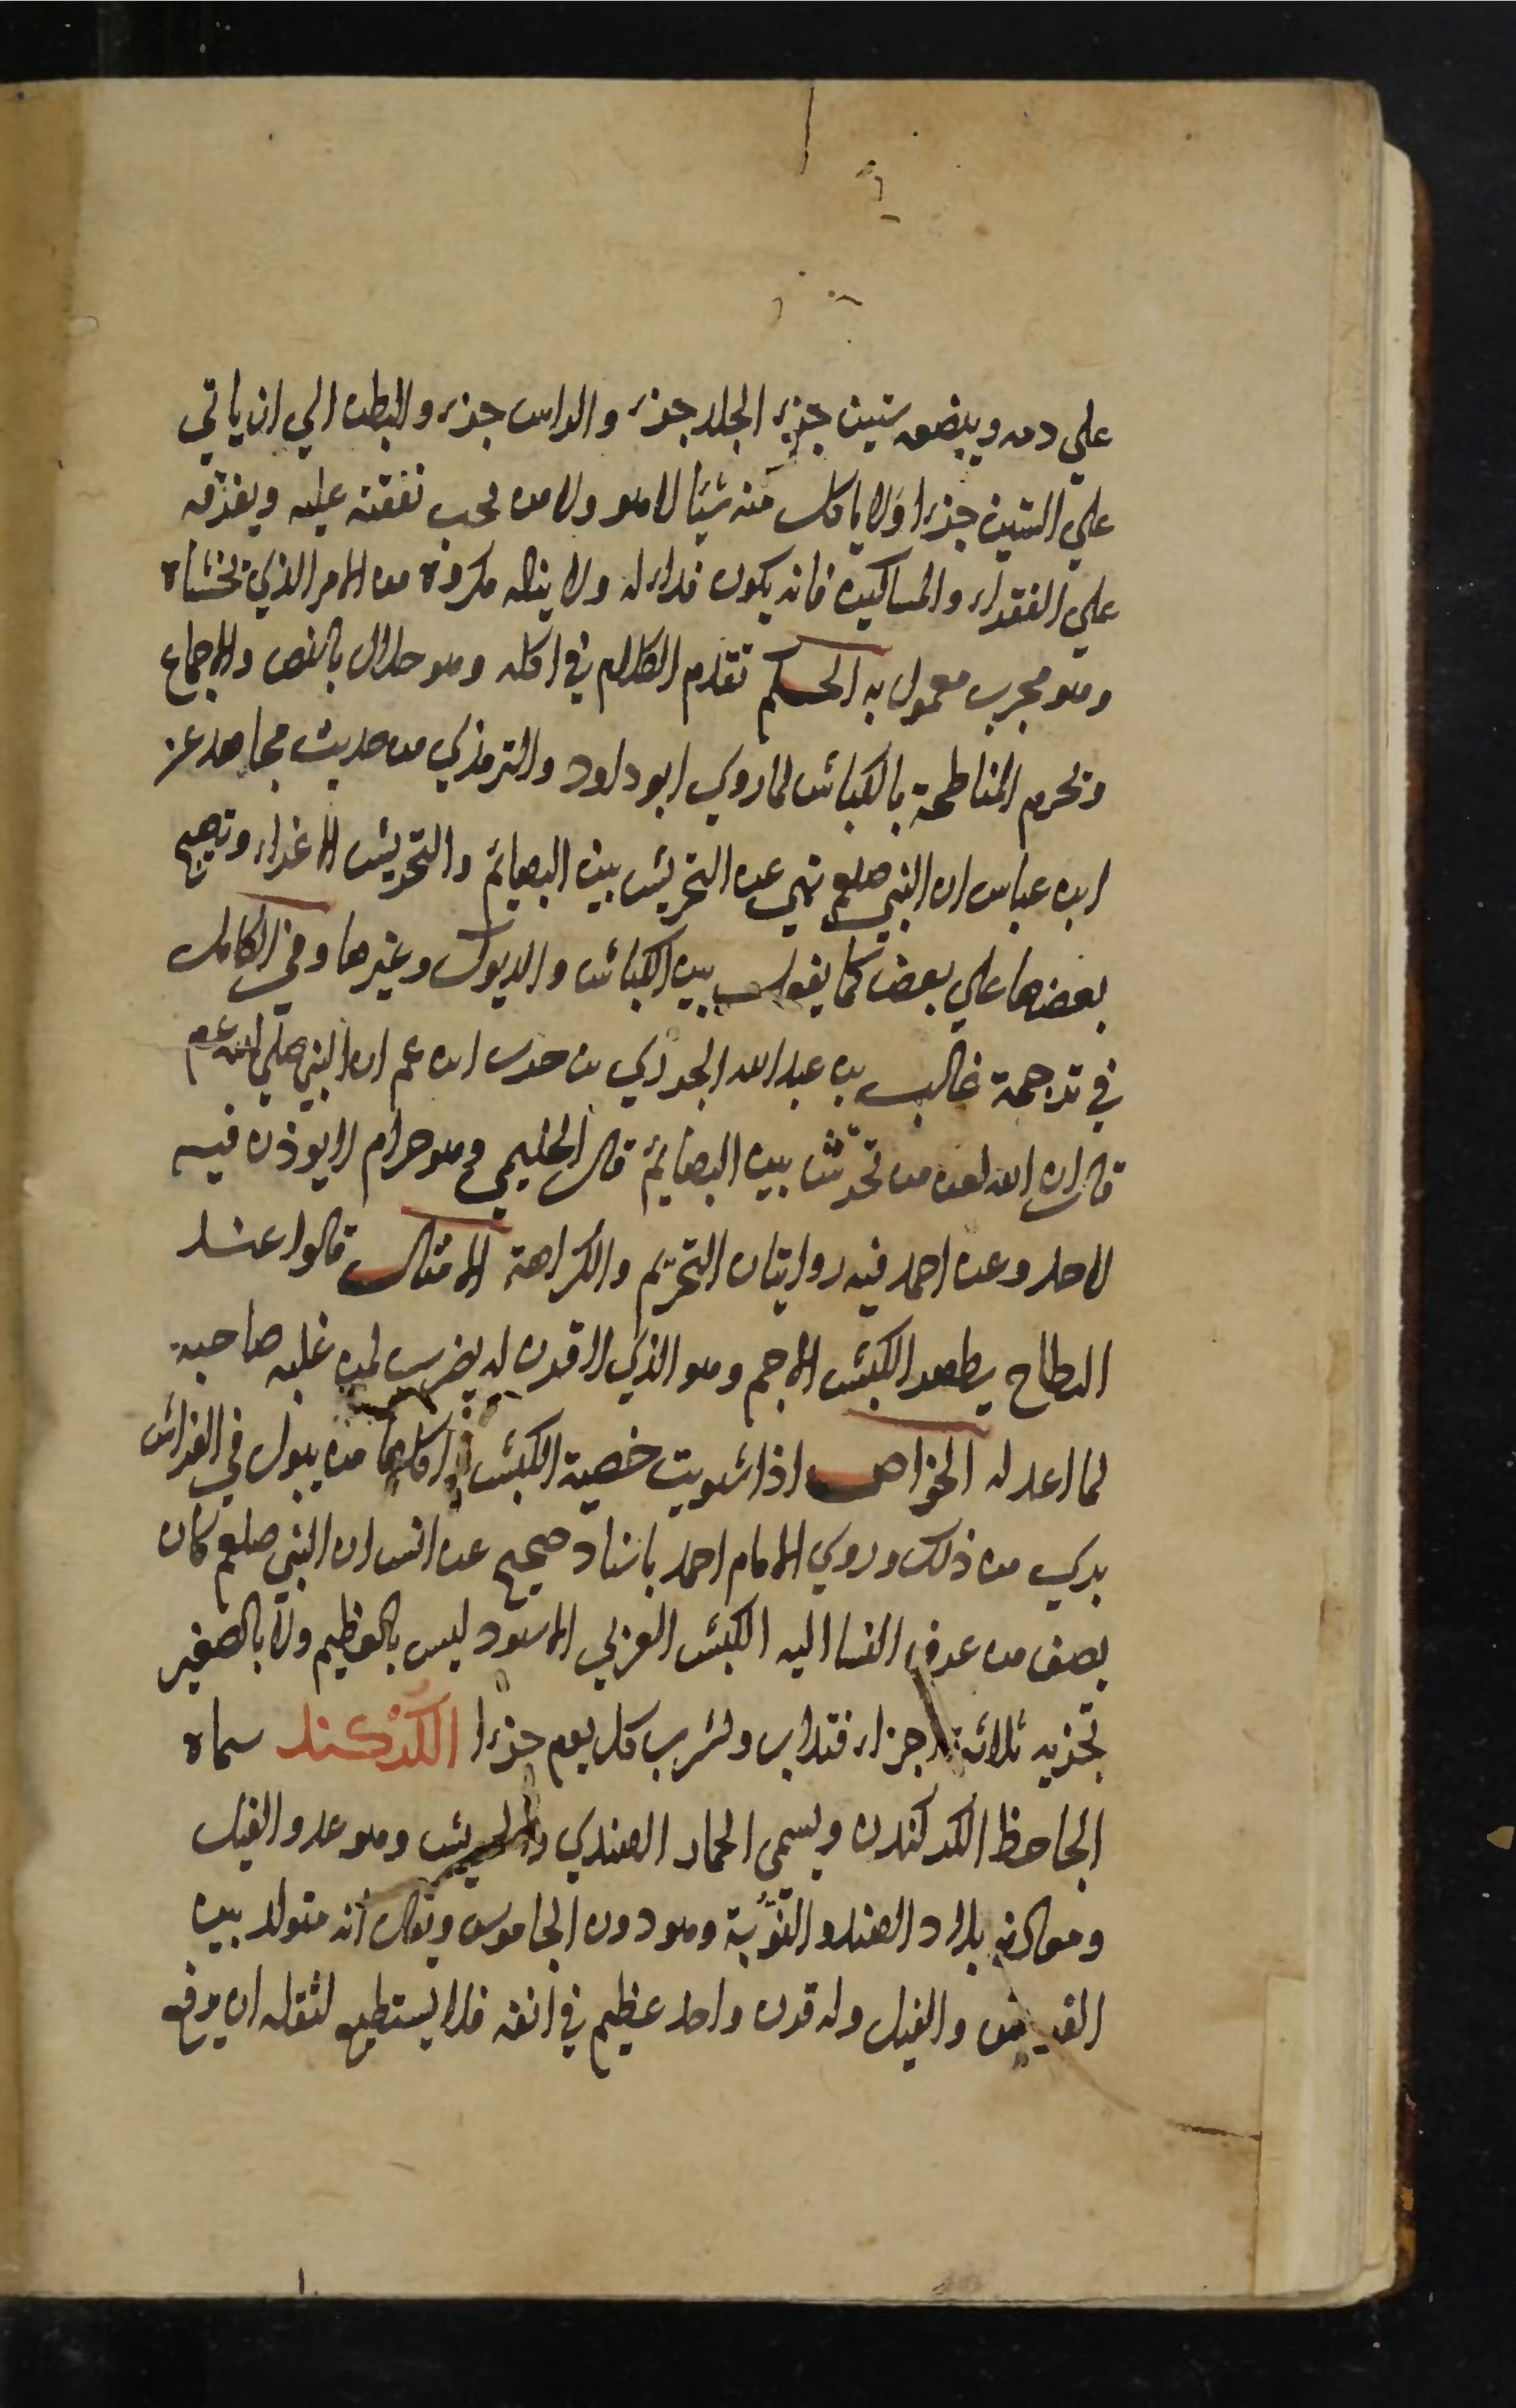 علي دمه ويبضعه ستين جزء الجلد جزء والراس جزء والبطن الي ان ياتي
علي الستين جزءا ولا ياكل منه شيا لا هو ولا من يجب نفقته عليه ويفرقه
علي الفقراء والمساكين فانه يكون فداء له ولا يناله مكروه من الامر الذي يخشاه
وهو مجرب معمول به الحكم تقدم الكلام في اكله وهو حلال بالنص والاجماع
وتحرم المناطحة بالكباش لما روي ابو داود والترمذي من حديث مجاهد عن
ابن عباس ان النبي صلعم نهي عن التحريش بين البهايم والتحريش الاغراء وتهييج
بعضها علي بعض كما يفعل بين الكباش والديوك وغيرها وفي الكامل
في ترجمة غالب بن عبد الله الجزري من حدث ابن عمر ان النبي صلي الله عم
قال ان الله لعن من تحرش بين البهايم قال الحليمي وهو حرام لا يوذن فيه
لاحد وعن احمد فيه روايتان التحريم والكراهة الامثال قالوا عند
النطاح يطعن الكبش الاجم وهو الذي لا قرن له يضرب لمن غلبه صاحبه
لما اعد له الخواص اذا شويت خصية الكبش اكلها من يبول في الفراش
بري من ذلك وروي الامام احمد باسناد صحيح عن انس ان النبي صلعم كان
يصف من عرق النسا الية الكبش العربي الاسود ليس بالعظيم ولا بالصغير
تجزيه ثلاثة اجزاء فتذاب وتشرب كل يوم جزءا الكركند سماه
الجاحظ الكركندن ويسمي الحمار الهندي والحريش وهو عدو الفيل
ومعدنه بلاد الهند والنوبة وهو دون الجاموس ويقال انه متولد بين
الفرس والفيل وله قرن واحد عظيم في انفه فلا يستطيع لثقله ان يرفع